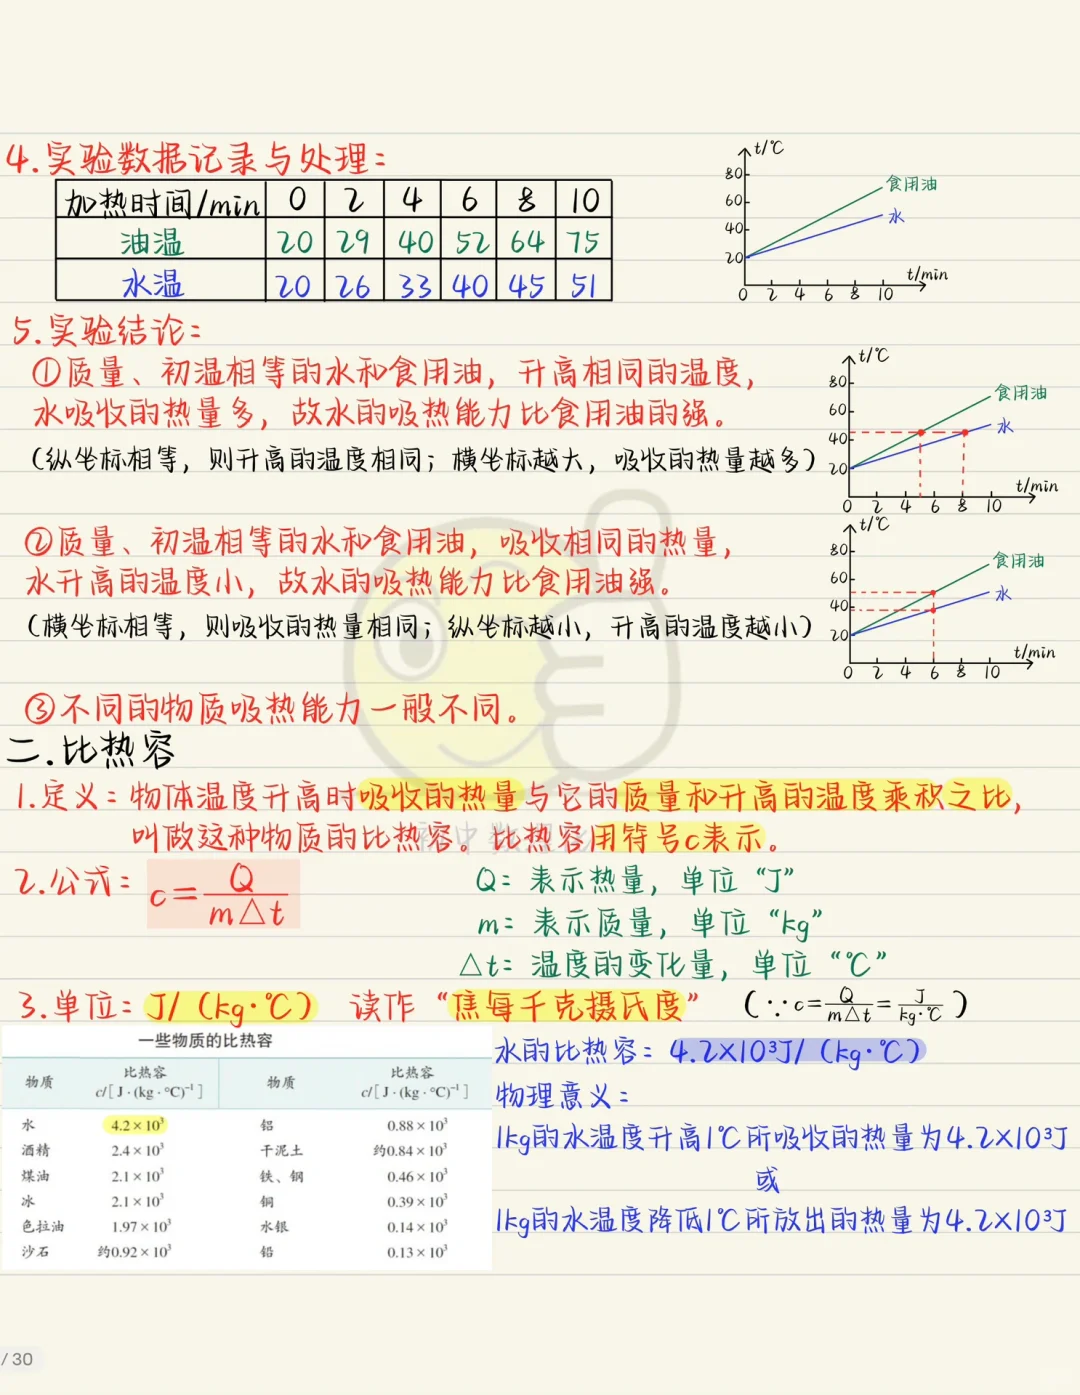 4.实验数据记录与处理：
加热时间/min 0 2 4 6 8 10
油温 20 29 40 52 64 75
水温 20 26 33 40 45 51
t/℃
80
60
40
20
食用油
水
t/min
0 2 4 6 8 10
5.实验结论：
①质量、初温相等的水和食用油，升高相同的温度，
水吸收的热量多，故水的吸热能力比食用油的强。
（纵坐标相等，则升高的温度相同；横坐标越大，吸收的热量越多）
t/℃
80
60
40
20
食用油
水
t/min
0 2 4 6 8 10
②质量、初温相等的水和食用油，吸收相同的热量，
水升高的温度小，故水的吸热能力比食用油强。
（横坐标相等，则吸收的热量相同；纵坐标越小，升高的温度越小）
t/℃
80
60
40
20
食用油
水
t/min
0 2 4 6 8 10
③不同的物质吸热能力一般不同。
二.比热容
1.定义：物体温度升高时吸收的热量与它的质量和升高的温度乘积之比，
叫做这种物质的比热容。比热容用符号c表示。
2.公式：c=Q/m△t
Q：表示热量，单位“J”
m：表示质量，单位“kg”
△t：温度的变化量，单位“℃”
3.单位：J/（kg·℃） 读作“焦每千克摄氏度” （∵c=Q/m△t=J/kg·℃）
一些物质的比热容
物质 比热容 c/[J·(kg·°C)⁻¹] 物质 比热容 c/[J·(kg·°C)⁻¹]
水 4.2×10³ 铝 0.88×10³
酒精 2.4×10³ 干泥土 约0.84×10³
煤油 2.1×10³ 铁、钢 0.46×10³
冰 2.1×10³ 铜 0.39×10³
色拉油 1.97×10³ 水银 0.14×10³
沙石 约0.92×10³ 铅 0.13×10³
水的比热容：4.2×10³J/（kg·℃）
物理意义：
1kg的水温度升高1℃所吸收的热量为4.2×10³J
或
1kg的水温度降低1℃所放出的热量为4.2×10³J
/ 30